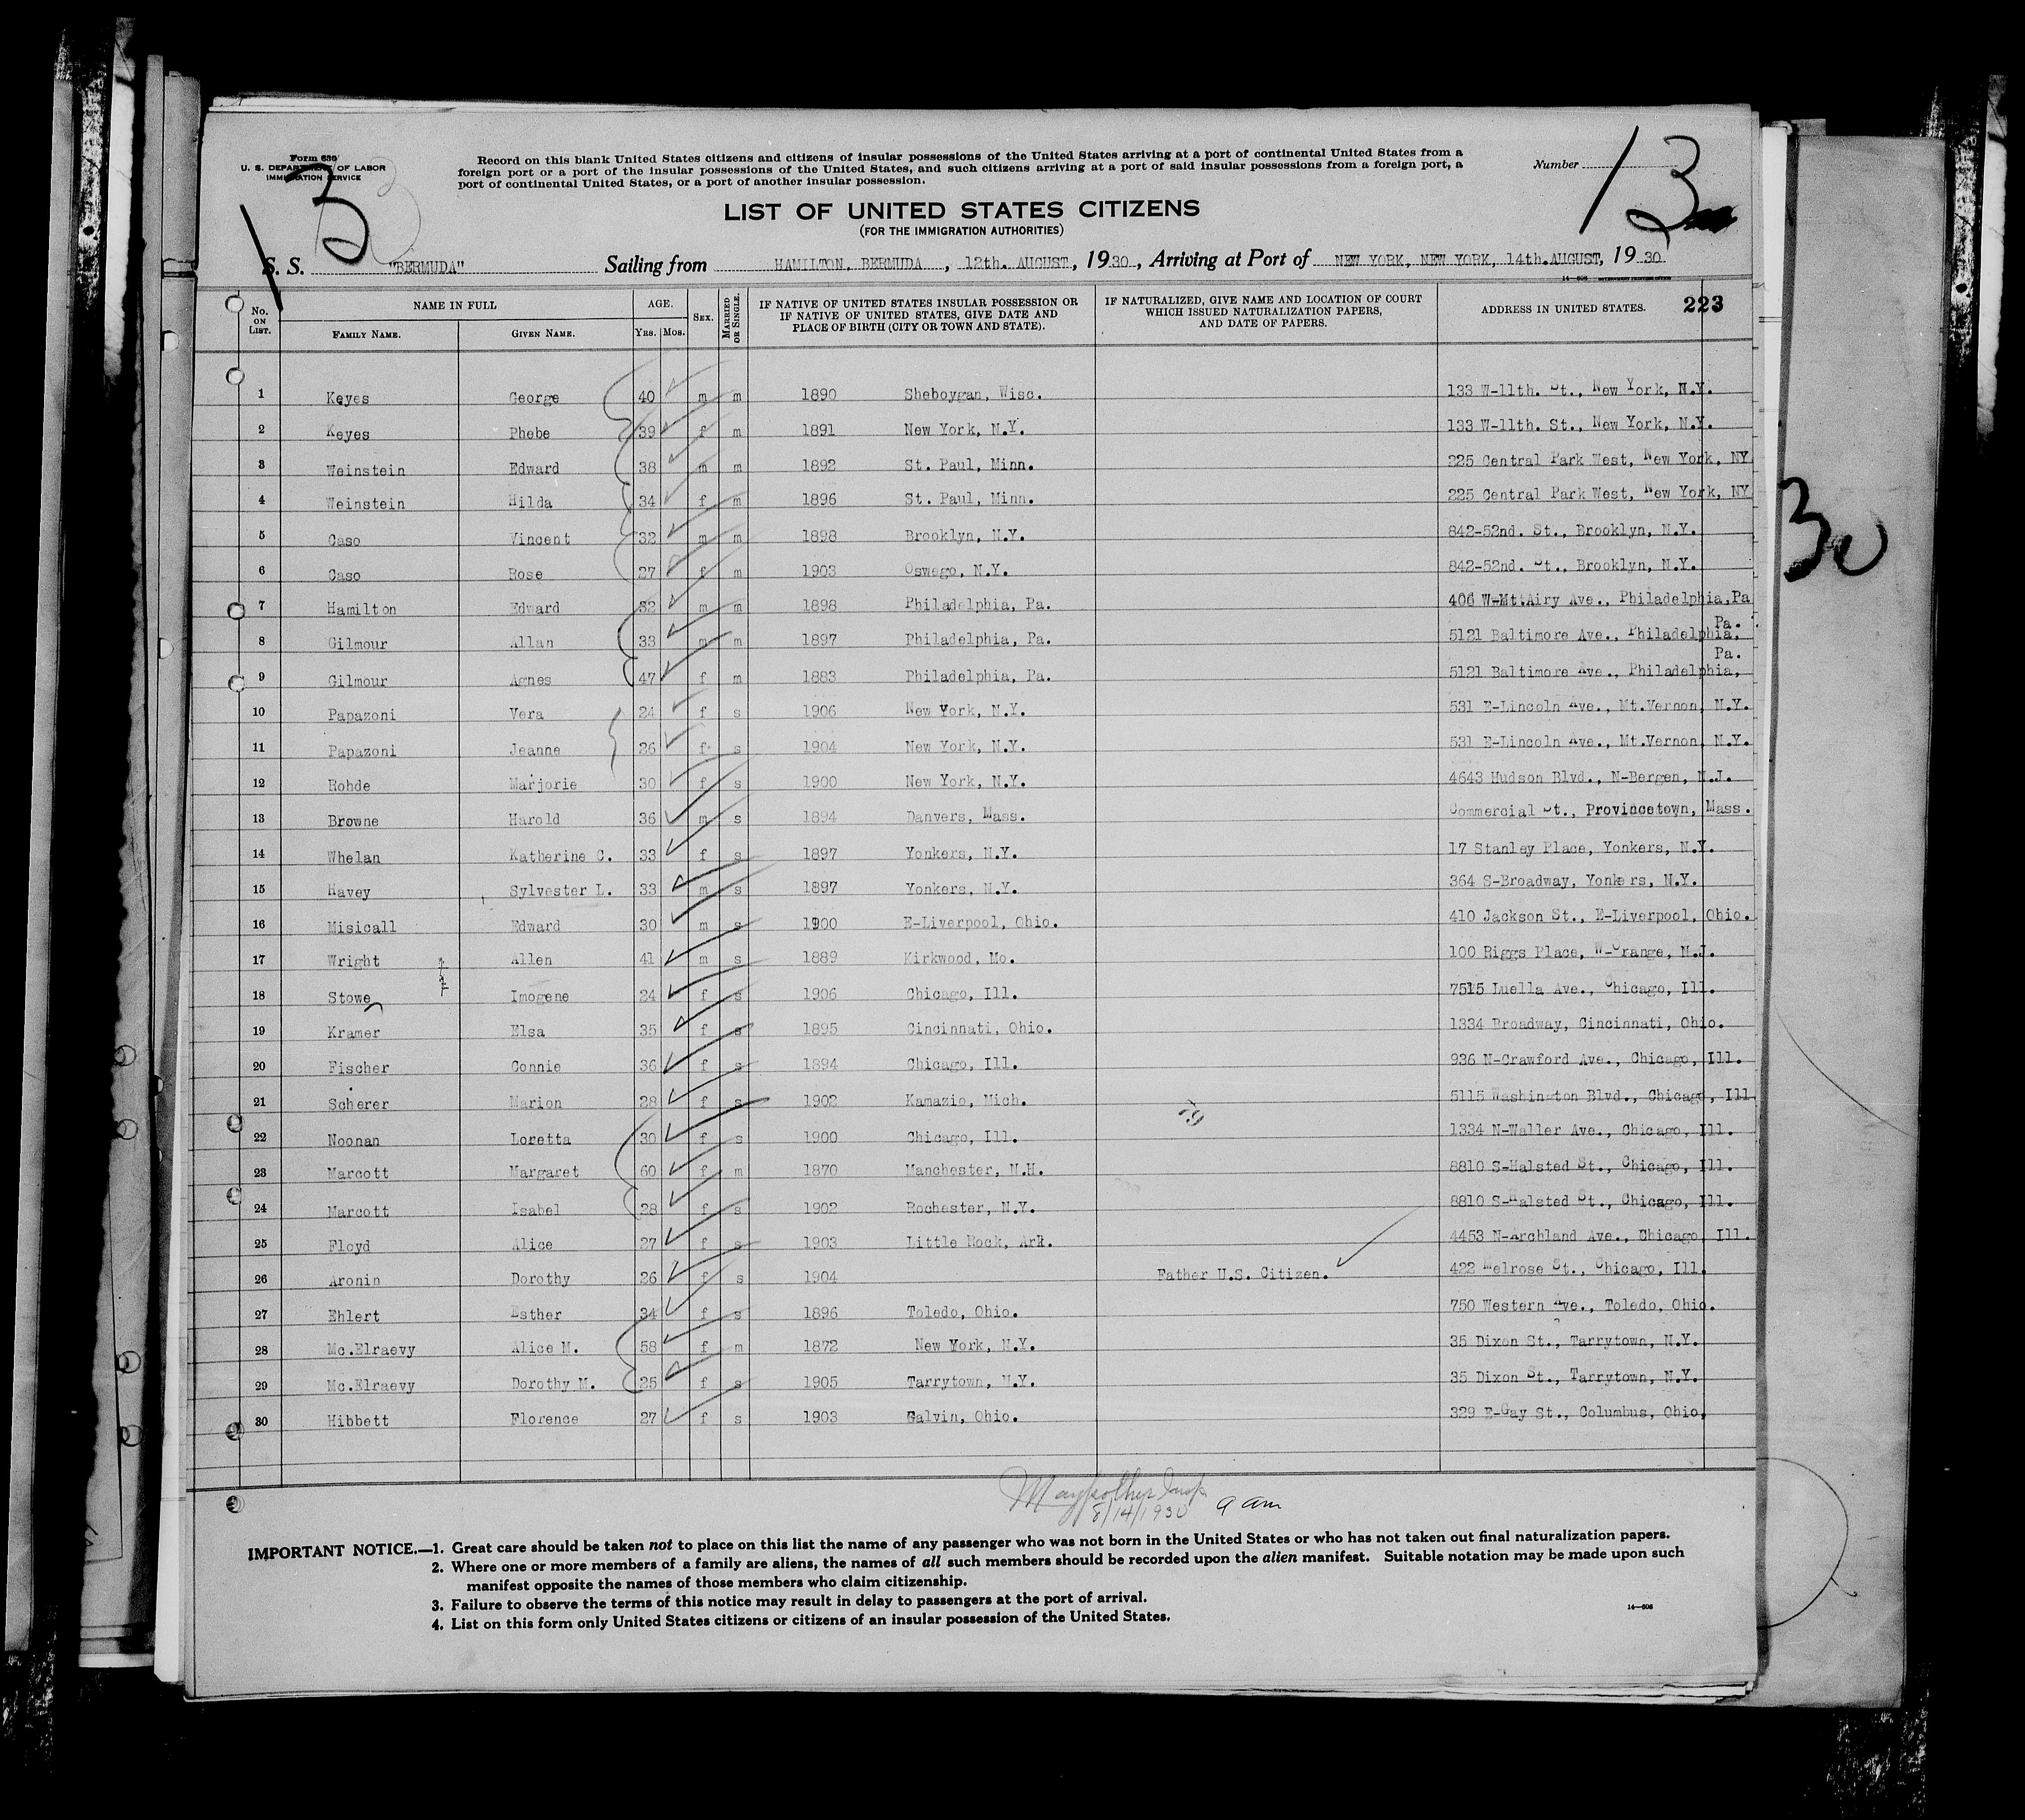 Form 630
U. S. DEPARTMENT OF LABOR
IMMIGRATION SERVICE
Record on this blank United States citizens and citizens of insular possessions of the United States arriving at a port of continental United States from a
foreign port or a port of the insular possessions of the United States, and such citizens arriving at a port of said insular possessions from a foreign port, a
port of continental United States, or a port of another insular possession.
Number
13
13
LIST OF UNITED STATES CITIZENS
(FOR THE IMMIGRATION AUTHORITIES)
S. S. "BERMUDA" Sailing from HAMILTON, BERMUDA , 12th. AUGUST , 19 30 , Arriving at Port of NEW YORK, NEW YORK, 14th.AUGUST, 19 30
223
No. ON LIST. NAME IN FULL AGE. SEX. MARRIED OR SINGLE. IF NATIVE OF UNITED STATES INSULAR POSSESSION OR IF NATIVE OF UNITED STATES, GIVE DATE AND PLACE OF BIRTH (CITY OR TOWN AND STATE). IF NATURALIZED, GIVE NAME AND LOCATION OF COURT WHICH ISSUED NATURALIZATION PAPERS, AND DATE OF PAPERS. ADDRESS IN UNITED STATES.
FAMILY NAME. GIVEN NAME. YRS. MOS.
1 Keyes George 40 m m 1890 Sheboygan, Wisc. 133 W-11th. St., New York, N.Y.
2 Keyes Phebe 39 f m 1891 New York, N.Y. 133 W-11th. St., New York, N.Y.
3 Weinstein Edward 38 m m 1892 St. Paul, Minn. 225 Central Park West, New York, NY
4 Weinstein Hilda 34 f m 1896 St. Paul, Minn. 225 Central Park West, New York, NY
5 Caso Vincent 32 m m 1898 Brooklyn, N.Y. 842-52nd. St., Brooklyn, N.Y.
6 Caso Rose 27 f m 1903 Oswego, N.Y. 842-52nd. St., Brooklyn, N.Y.
7 Hamilton Edward 32 m m 1898 Philadelphia, Pa. 406 W-Mt.Airy Ave., Philadelphia,Pa
8 Gilmour Allan 33 m m 1897 Philadelphia, Pa. 5121 Baltimore Ave., Philadelphia, Pa.
9 Gilmour Agnes 47 f m 1883 Philadelphia, Pa. 5121 Baltimore Ave., Philadelphia, Pa.
10 Papazoni Vera 24 f s 1906 New York, N.Y. 531 E-Lincoln Ave., Mt.Vernon, N.Y.
11 Papazoni Jeanne 26 f s 1904 New York, N.Y. 531 E-Lincoln Ave., Mt.Vernon, N.Y.
12 Rohde Marjorie 30 f s 1900 New York, N.Y. 4643 Hudson Blvd., N-Bergen, N.J.
13 Browne Harold 36 m s 1894 Danvers, Mass. Commercial St., Provincetown, Mass.
14 Whelan Katherine C. 33 f s 1897 Yonkers, N.Y. 17 Stanley Place, Yonkers, N.Y.
15 Havey Sylvester L. 33 m s 1897 Yonkers, N.Y. 364 S-Broadway, Yonkers, N.Y.
16 Misicall Edward 30 m s 1900 E-Liverpool, Ohio. 410 Jackson St., E-Liverpool, Ohio.
17 Wright Allen 41 m s 1889 Kirkwood, Mo. 100 Riggs Place, W-Orange, N.J.
18 Stowe Imogene 24 f s 1906 Chicago, Ill. 7515 Luella Ave., Chicago, Ill.
19 Kramer Elsa 35 f s 1895 Cincinnati, Ohio. 1334 Broadway, Cincinnati, Ohio.
20 Fischer Connie 36 f s 1894 Chicago, Ill. 936 N-Crawford Ave., Chicago, Ill.
21 Scherer Marion 28 f s 1902 Kamazio, Mich. 5115 Washington Blvd., Chicago, Ill
22 Noonan Loretta 30 f s 1900 Chicago, Ill. 1334 N-Waller Ave., Chicago, Ill.
23 Marcott Margaret 60 f m 1870 Manchester, N.H. 8810 S-Halsted St., Chicago, Ill.
24 Marcott Isabel 28 f s 1902 Rochester, N.Y. 8810 S-Halsted St., Chicago, Ill.
25 Floyd Alice 27 f s 1903 Little Rock, Ark. 4453 N-Archland Ave., Chicago, Ill.
26 Aronin Dorothy 26 f s 1904 Father U.S. Citizen. 422 Melrose St., Chicago, Ill.
27 Ehlert Esther 34 f s 1896 Toledo, Ohio. 750 Western Ave., Toledo, Ohio.
28 Mc.Elraevy Alice M. 58 f m 1872 New York, N.Y. 35 Dixon St., Tarrytown, N.Y.
29 Mc.Elraevy Dorothy M. 25 f s 1905 Tarrytown, N.Y. 35 Dixon St., Tarrytown, N.Y.
30 Hibbett Florence 27 f s 1903 Galvin, Ohio. 329 E-Gay St., Columbus, Ohio.
30
8/14/1930 9 am
IMPORTANT NOTICE.—1. Great care should be taken not to place on this list the name of any passenger who was not born in the United States or who has not taken out final naturalization papers.
2. Where one or more members of a family are aliens, the names of all such members should be recorded upon the alien manifest. Suitable notation may be made upon such
manifest opposite the names of those members who claim citizenship.
3. Failure to observe the terms of this notice may result in delay to passengers at the port of arrival.
4. List on this form only United States citizens or citizens of an insular possession of the United States.
14—606